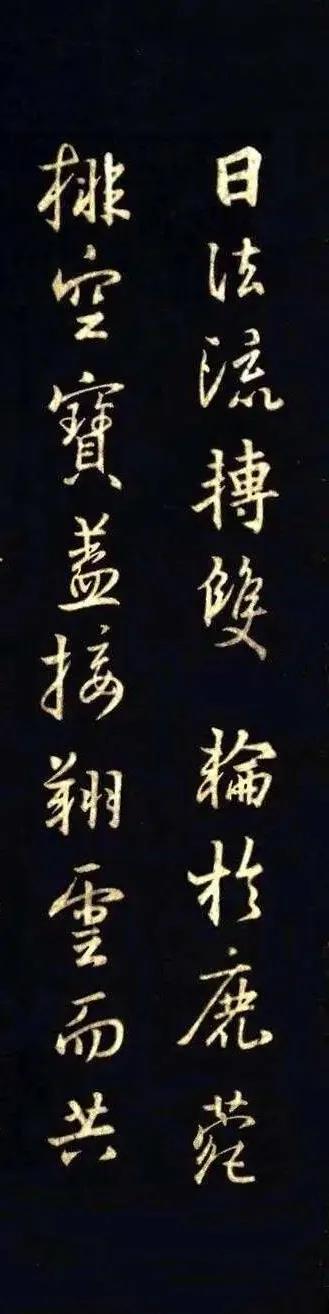 日法流轉雙輪於鹿菀
排空寶盖接翔雲而共